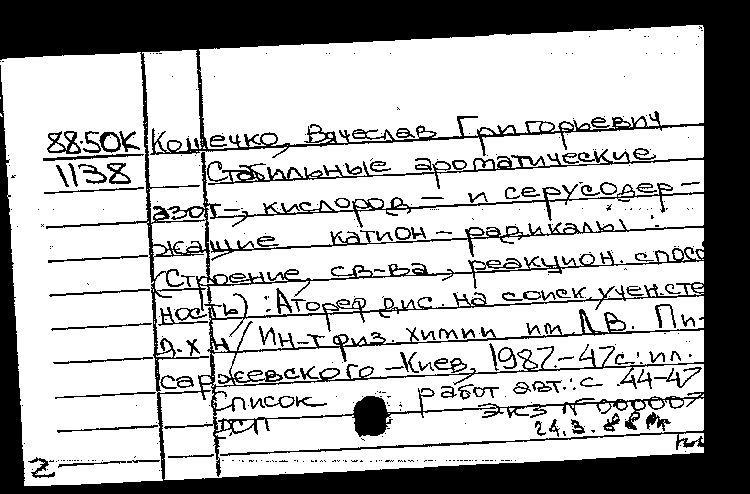 88.50К Кошечко, Вячеслав Григорьевич
1138 Стабильные ароматические
азот-, кислород- и серусодер-
жащие катион-радикалы :
(Строение, св-ва, реакцион. способ
ность) : Автореф дис. на соиск. учен. сте
д. х н / Ин-т физ. химии им Л.В. Пи-
саржевского -Киев, 1987.-47с.: ил.
Список работ авт.: с 44-47
ДСП Экз №000007
24.3.88
2